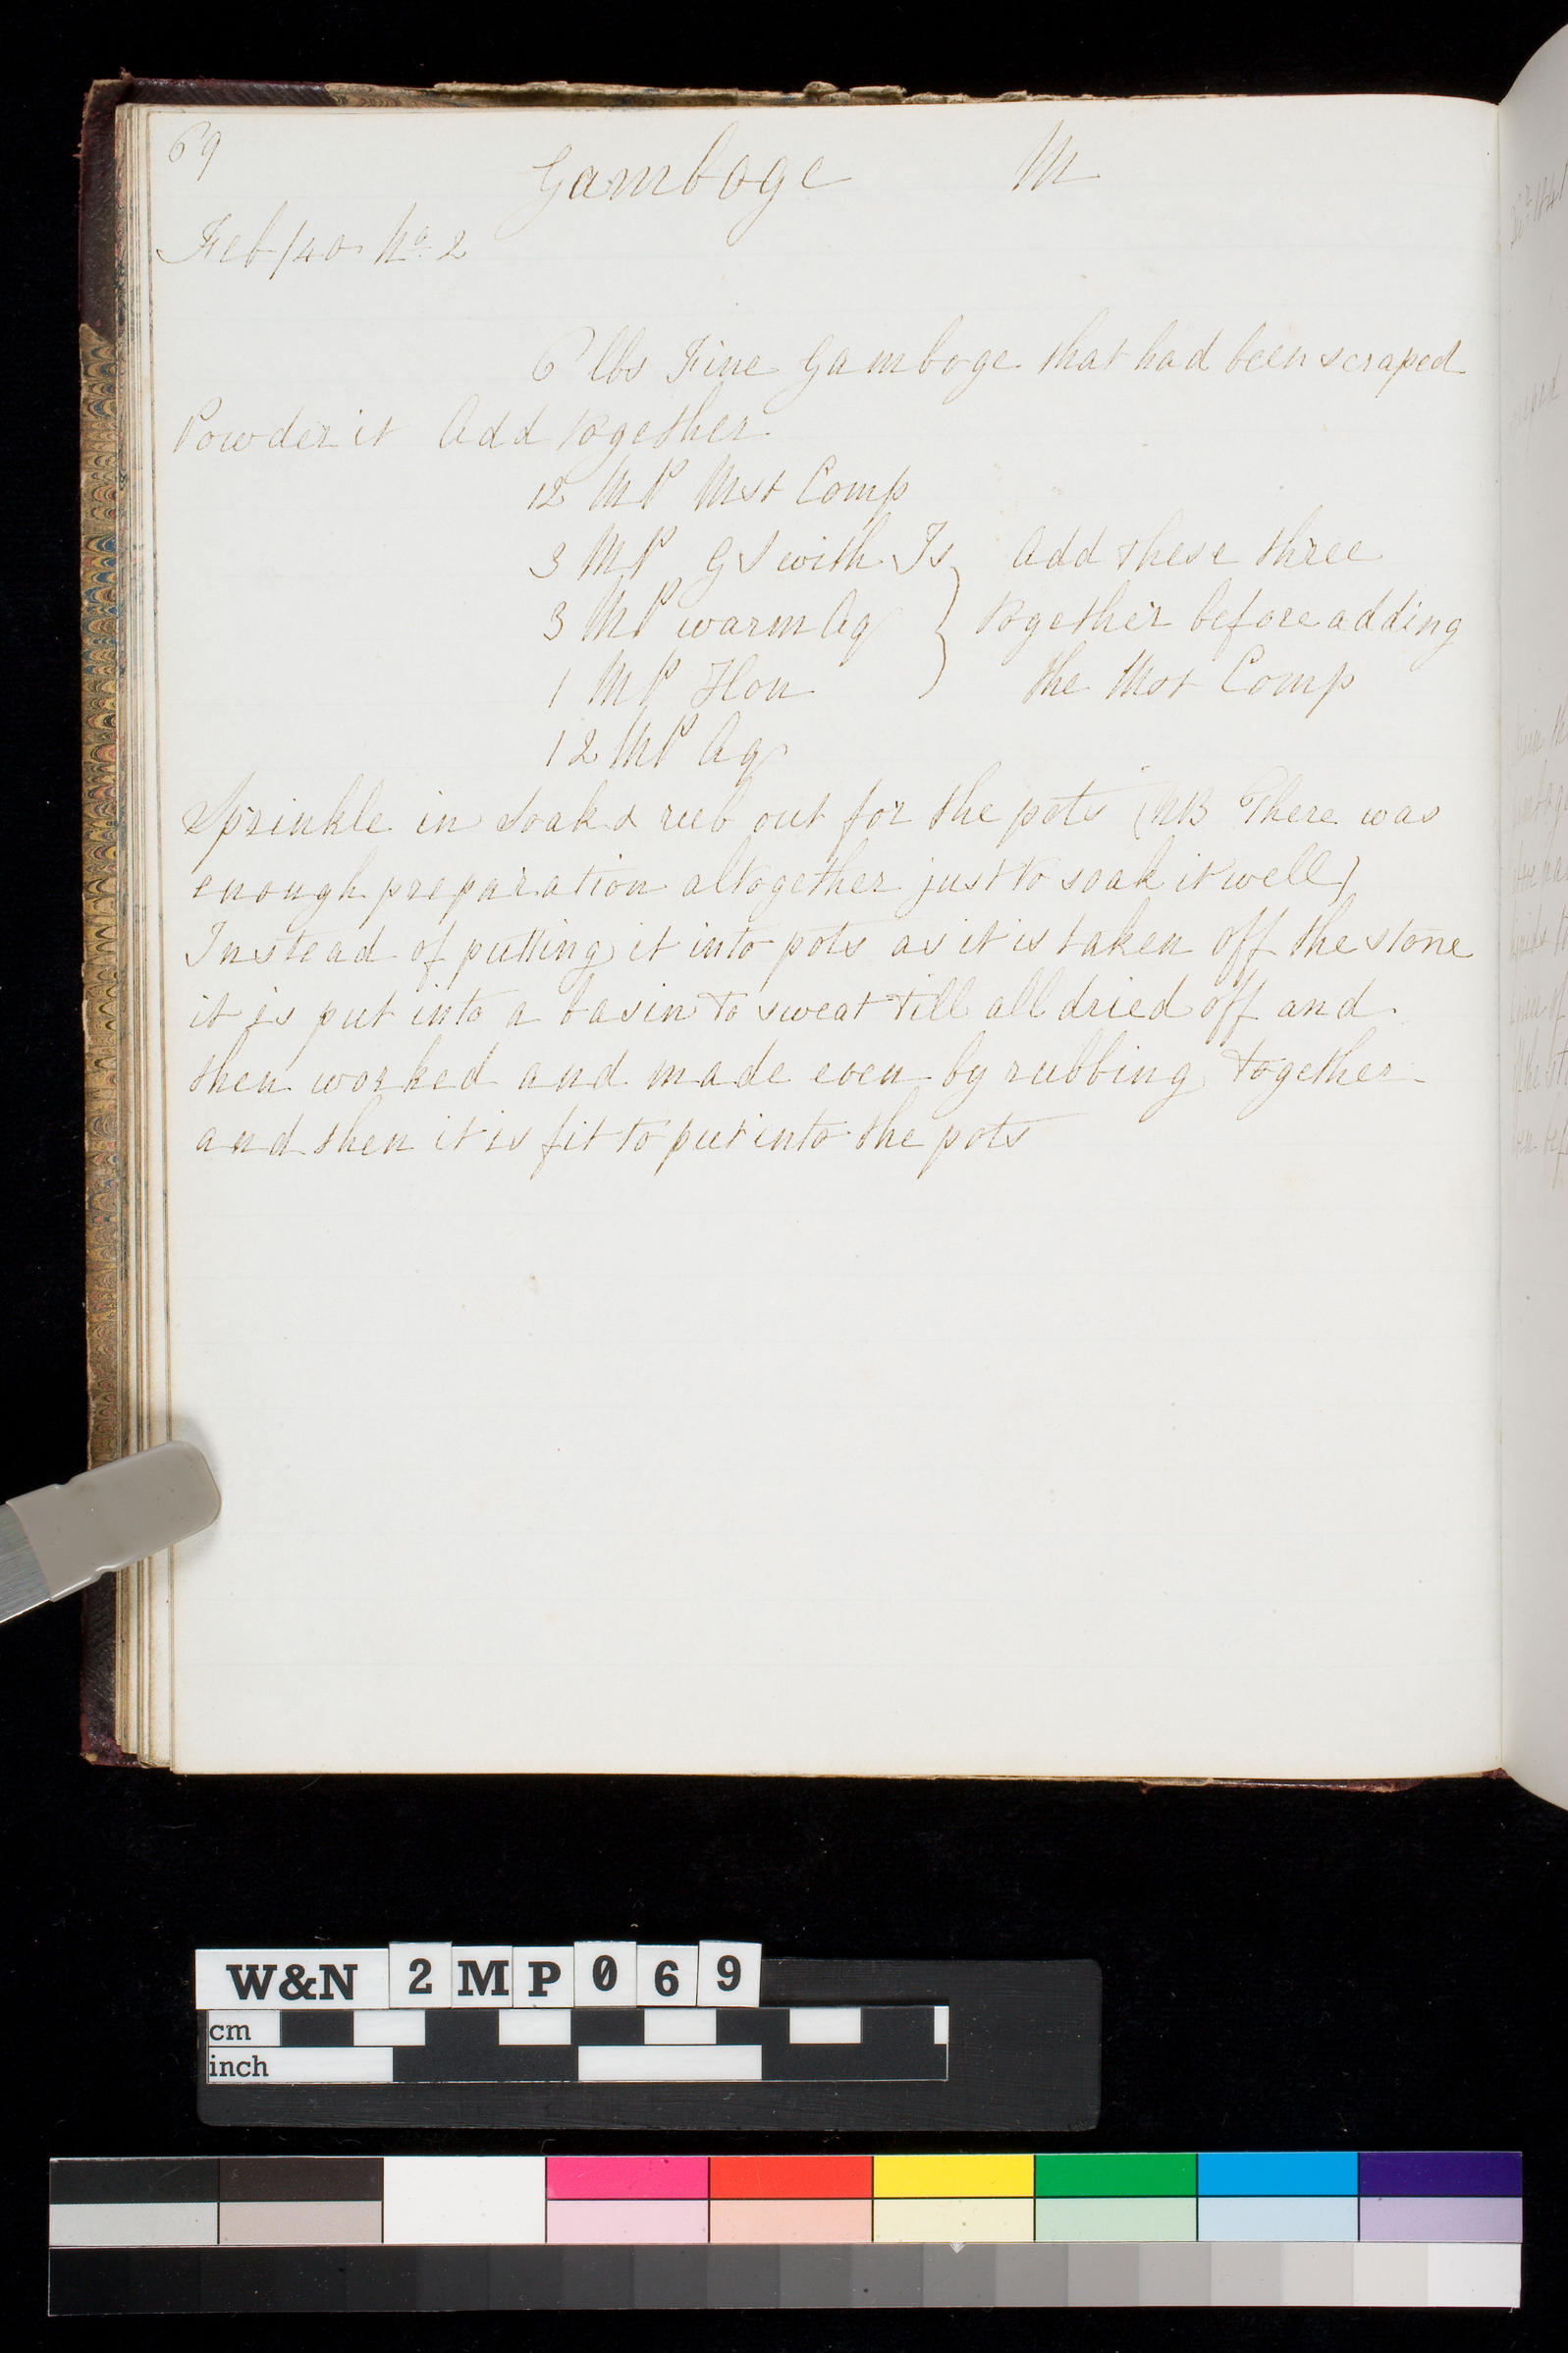 69
Gamboge M
Feb/40 No. 2
6 lbs Fine Gamboge that had been scraped
Powder it Add together
12 MP Mst Comp
3 MP GS with Is } Add these three
3 MP warm Aq } together before adding
1 MP Hon } the Mst Comp
12 MP Aq
Sprinkle in soak & rub out for the pots (NB There was
enough preparation altogether just to soak it well)
Instead of putting it into pots as it is taken off the stone
it is put into a basin to sweat till all dried off and
then worked and made even by rubbing together
and then it is fit to put into the pots
W&N 2MP069
cm
inch